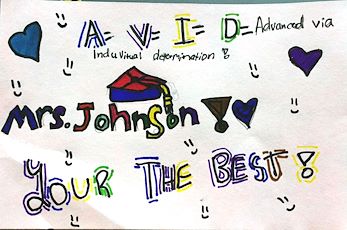 A = V = I = D = Advanced via
Induvitual determination !
Mrs. Johnson !
YOUR THE BEST !